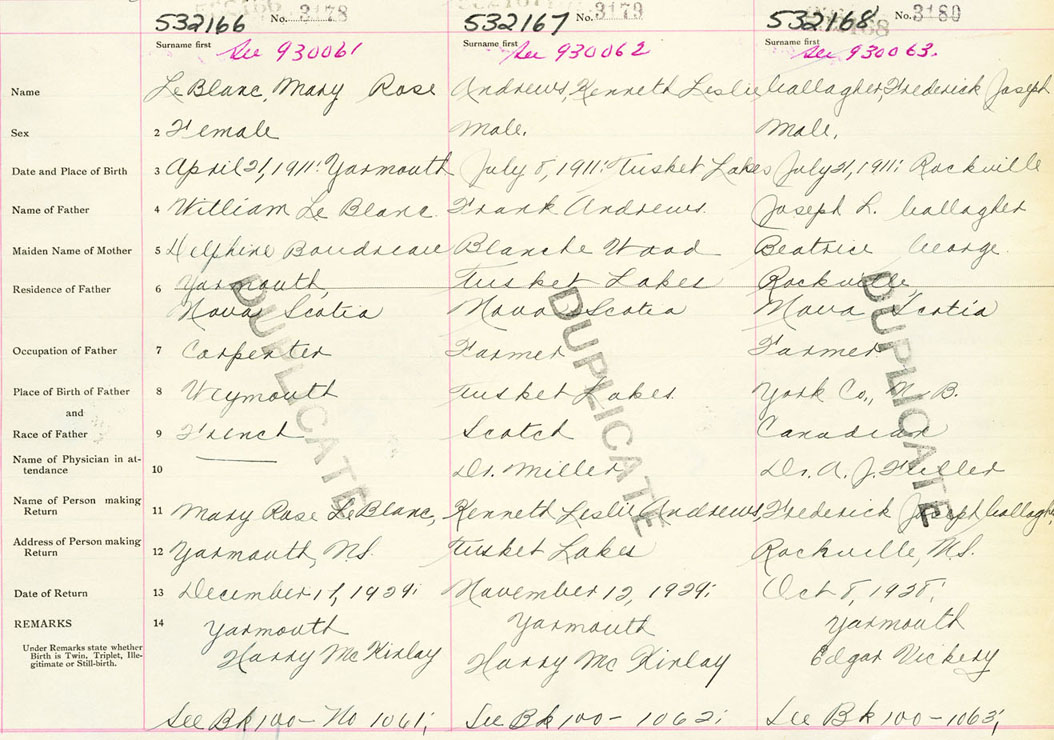 532166 No. 3178 532167 No. 3179 532168 No. 3180
Surname first Surname first Surname first
See 930061 See 930062 See 930063.
Name LeBlanc, Mary Rose Andrews, Kenneth Leslie Gallagher, Frederick Joseph
Sex 2 Female Male. Male.
Date and Place of Birth 3 April 21, 1911: Yarmouth July 8, 1911: Tusket Lakes July 21, 1911; Rockville
Name of Father 4 William Le Blanc Frank Andrews. Joseph L. Gallagher
Maiden Name of Mother 5 Delphine Boudreau Blanche Wood Beatrice George.
Residence of Father 6 Yarmouth, Tusket Lakes Rockville,
Nova Scotia Nova Scotia Nova Scotia
Occupation of Father 7 Carpenter Farmer Farmer
Place of Birth of Father 8 Weymouth Tusket Lakes. York Co., N. B.
and
Race of Father 9 French Scotch Canadian
Name of Physician in at-
tendance 10 Dr. Miller Dr. A. J. Fuller
Name of Person making
Return 11 Mary Rose LeBlanc, Kenneth Leslie Andrews, Frederick Joseph Gallagher
Address of Person making
Return 12 Yarmouth, N.S. Tusket Lakes Rockville, N.S.
Date of Return 13 December 11, 1929; November 12, 1929; Oct 8, 1928;
REMARKS 14 Yarmouth Yarmouth Yarmouth
Under Remarks state whether
Birth is Twin, Triplet, Ille-
gitimate or Still-birth.
Harry McKinlay Harry McKinlay Edgar Vickery
See Bk 100 - No 1061; See Bk 100 - 1062; See Bk 100 - 1063;
DUPLICATE DUPLICATE DUPLICATE